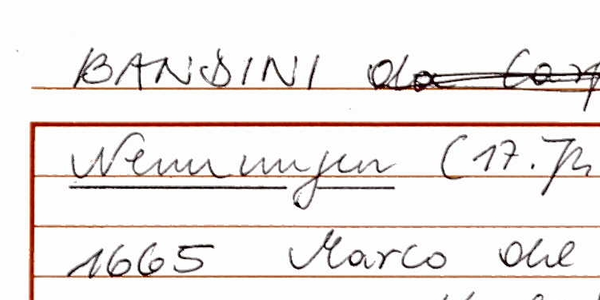 BANDINI da
Nennungen (17.
1665 Marco del